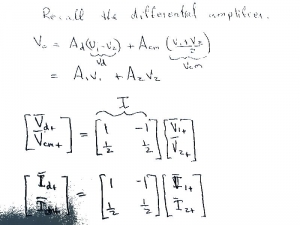 Recall the differential amplifier.
V₀ = A_d(V₁-V₂) + A_cm (V₁+V₂ / 2)
V_d V_cm
= A₁V₁ + A₂V₂
I
[V̄_d+ V̄_cm+] = [1 -1 ½ ½] [V̄₁+ V̄₂+]
[Ī_d+ ] = [1 -1 ½ ½] [Ī₁+ Ī₂+]